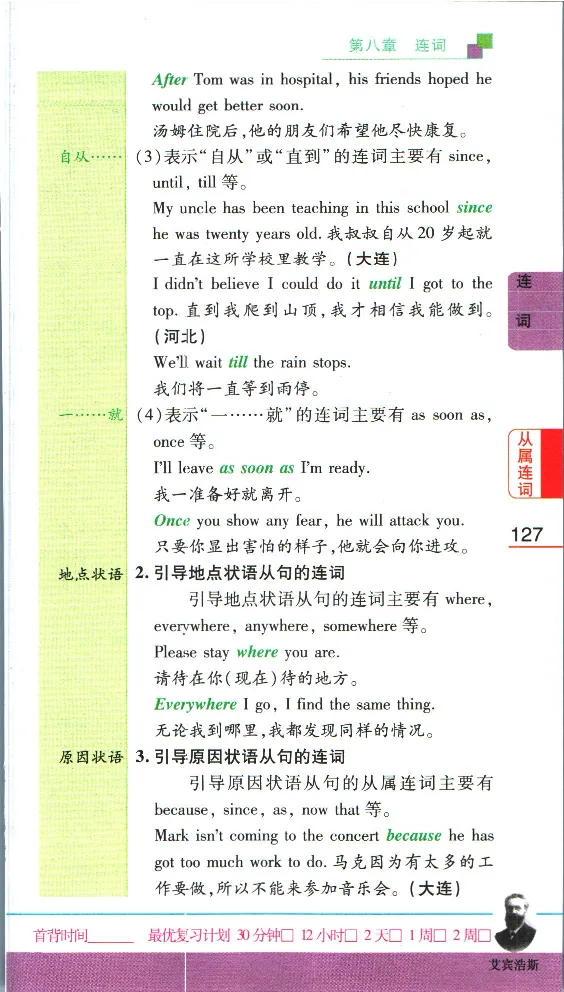 第八章 连词
After Tom was in hospital, his friends hoped he
would get better soon.
汤姆住院后,他的朋友们希望他尽快康复。
自从……
(3)表示“自从”或“直到”的连词主要有 since,
until, till 等。
My uncle has been teaching in this school since
he was twenty years old. 我叔叔自从 20 岁起就
一直在这所学校里教学。(大连)
I didn't believe I could do it until I got to the
top. 直到我爬到山顶,我才相信我能做到。
(河北)
We'll wait till the rain stops.
我们将一直等到雨停。
一……就
(4)表示“一……就”的连词主要有 as soon as,
once 等。
I'll leave as soon as I'm ready.
我一准备好就离开。
Once you show any fear, he will attack you.
只要你显出害怕的样子,他就会向你进攻。
地点状语
2. 引导地点状语从句的连词
引导地点状语从句的连词主要有 where,
everywhere, anywhere, somewhere 等。
Please stay where you are.
请待在你(现在)待的地方。
Everywhere I go, I find the same thing.
无论我到哪里,我都发现同样的情况。
原因状语
3. 引导原因状语从句的连词
引导原因状语从句的从属连词主要有
because, since, as, now that 等。
Mark isn't coming to the concert because he has
got too much work to do. 马克因为有太多的工
作要做,所以不能来参加音乐会。(大连)
连
词
从属连词
127
首背时间______ 最优复习计划 30 分钟□ 12 小时□ 2 天□ 1 周□ 2 周□
艾宾浩斯